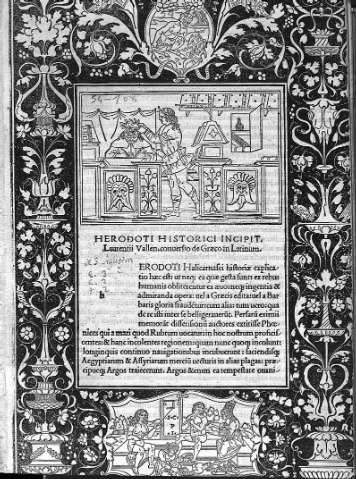 HERODOTI HISTORICI INCIPIT.
Laurentii Vallen. conuersio de Græco in Latinum.
ERODOTI Halicarnasei historiæ explica
tio hæc est: ut neq; ea quæ gesta sunt ex rebus
humanis obliterentur ex æuo: neq; ingentia &
admiranda opera: uel a Græcis edita uel a Bar
baris gloria fraudentur: cum alia: tum uero: qua
de re isti inter se belligerauerunt. Persarū eximii
h
memorant dissensionū auctores extitisse Phœ
nices: qui a mari quod Rubrum uocatur in hoc nostrum proficis
centes: & hanc incolentes regionem: quam nunc quoq; incolunt
longinquis continuo nauigationibus incubuerunt: faciendisq;
Aegyptiarum & Assyriarum merciū uecturis in alias plagas: præ
cipueq; Argos traiecerunt. Argos & enim ea tempestate omni